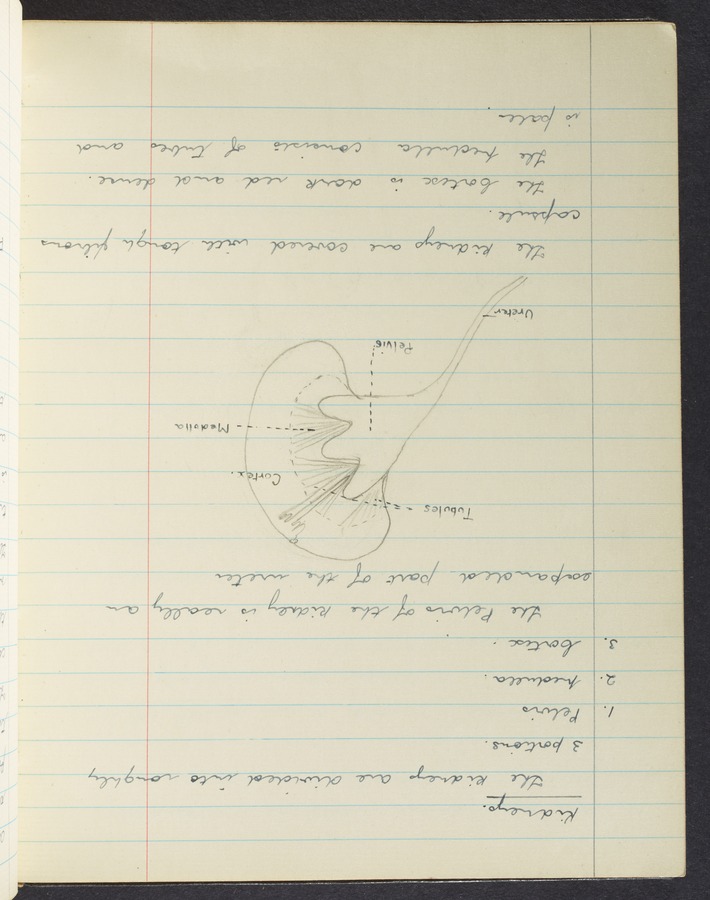 Kidneys.
The kidneys are divided into roughly
3 portions.
1. Pelvis
2. Medulla.
3. Cortex.
The Pelvis of the kidney is really an
expanded part of the ureter
Tubules
Cortex.
Medulla
Pelvis
Ureter
The kidneys are covered with tough fibrous
capsule.
The Cortex is dark red and dense.
The Medulla consists of tubes and
is paler